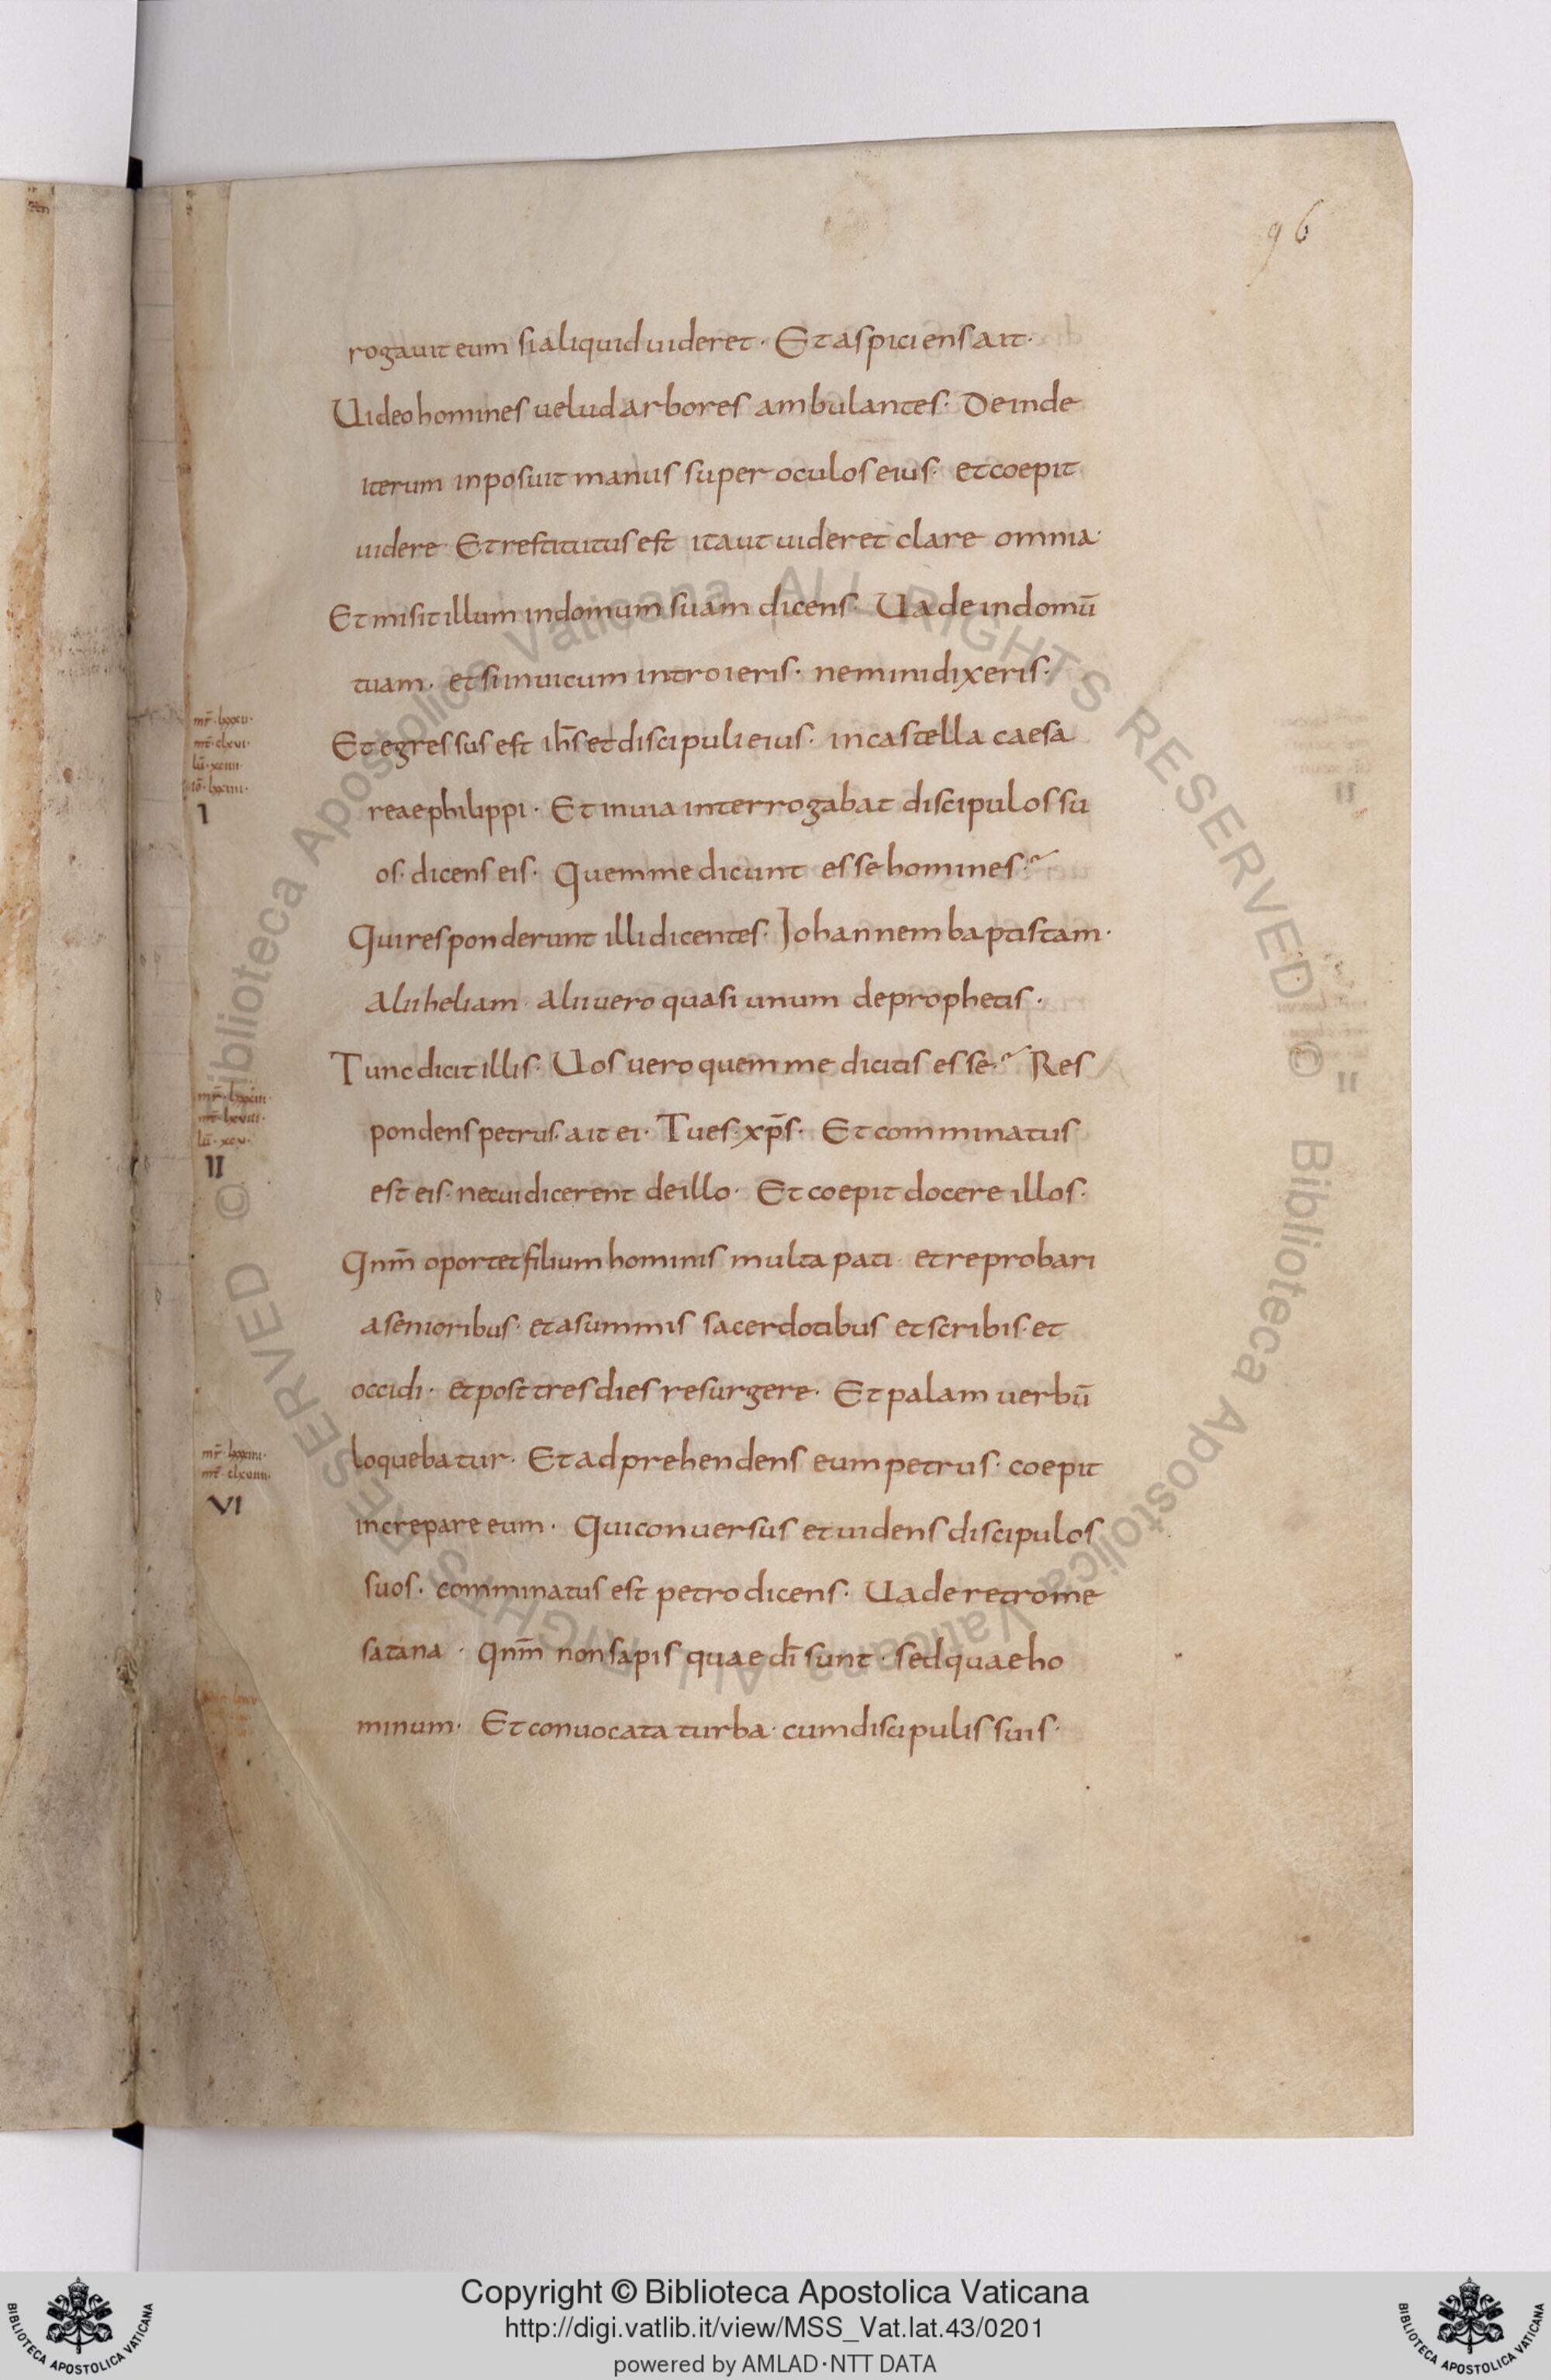 96
rogauit eum si aliquid uideret · Et aspiciens ait ·
Uideo homines uelud arbores ambulantes · Deinde
iterum inposuit manus super oculos eius · et coepit
uidere Et restitutus est ita ut uideret clare omnia ·
Et misit illum in domum suam dicens · Uade in domū
tuam · et si in uicum introieris · nemini dixeris ·
mr̄ · lxxxii ·
mt̄ · clxvi ·
lū · xciiii ·
iō · lxxiiii ·
I
Et egressus est ih̄s et discipuli eius · in castella caesa
reae philippi · Et in uia interrogabat discipulos su
os · dicens eis · Quem me dicunt esse homines ·
Qui responderunt illi dicentes · Johannem baptistam ·
alii heliam · alii uero quasi unum de prophetis ·
Tunc dicit illis · Uos uero quem me dicitis esse · Res
lū · xcv ·
II
pondens petrus · ait ei · Tu es · xp̄s · Et comminatus
est eis · ne cui dicerent de illo · Et coepit docere illos ·
Qnm̄ oportet filium hominis multa pati · et reprobari
a senioribus · et a summis sacerdotibus et scribis · et
occidi · et post tres dies resurgere · Et palam uerbū
VI
loquebatur · Et adprehendens eum petrus · coepit
increpare eum · Qui conuersus et uidens discipulos
suos · comminatus est petro dicens · Uade retro me
satana · qnm̄ non sapis quae dī sunt · sed quae ho
minum · Et conuocata turba · cum discipulis suis ·
© Biblioteca Apostolica Vaticana ALL RIGHTS RESERVED © Biblioteca Apostolica Vaticana ALL RIGHTS RESERVED
Copyright © Biblioteca Apostolica Vaticana
http://digi.vatlib.it/view/MSS_Vat.lat.43/0201
powered by AMLAD·NTT DATA
BIBLIOTECA APOSTOLICA VATICANA
BIBLIOTECA APOSTOLICA VATICANA